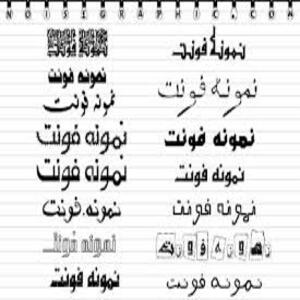 NOISIGRAPHIC.COM
نمونه فونت
نمونه فونت
نمونه فونت
نمونه فونت
نمونه فونت
نمونه فونت
نمونه فونت
نمونه فونت
نمونه فونت
نمونه فونت
نمونه فونت
نمونه فونت
نمونه فونت
نمونه فونت
نمونه فونت